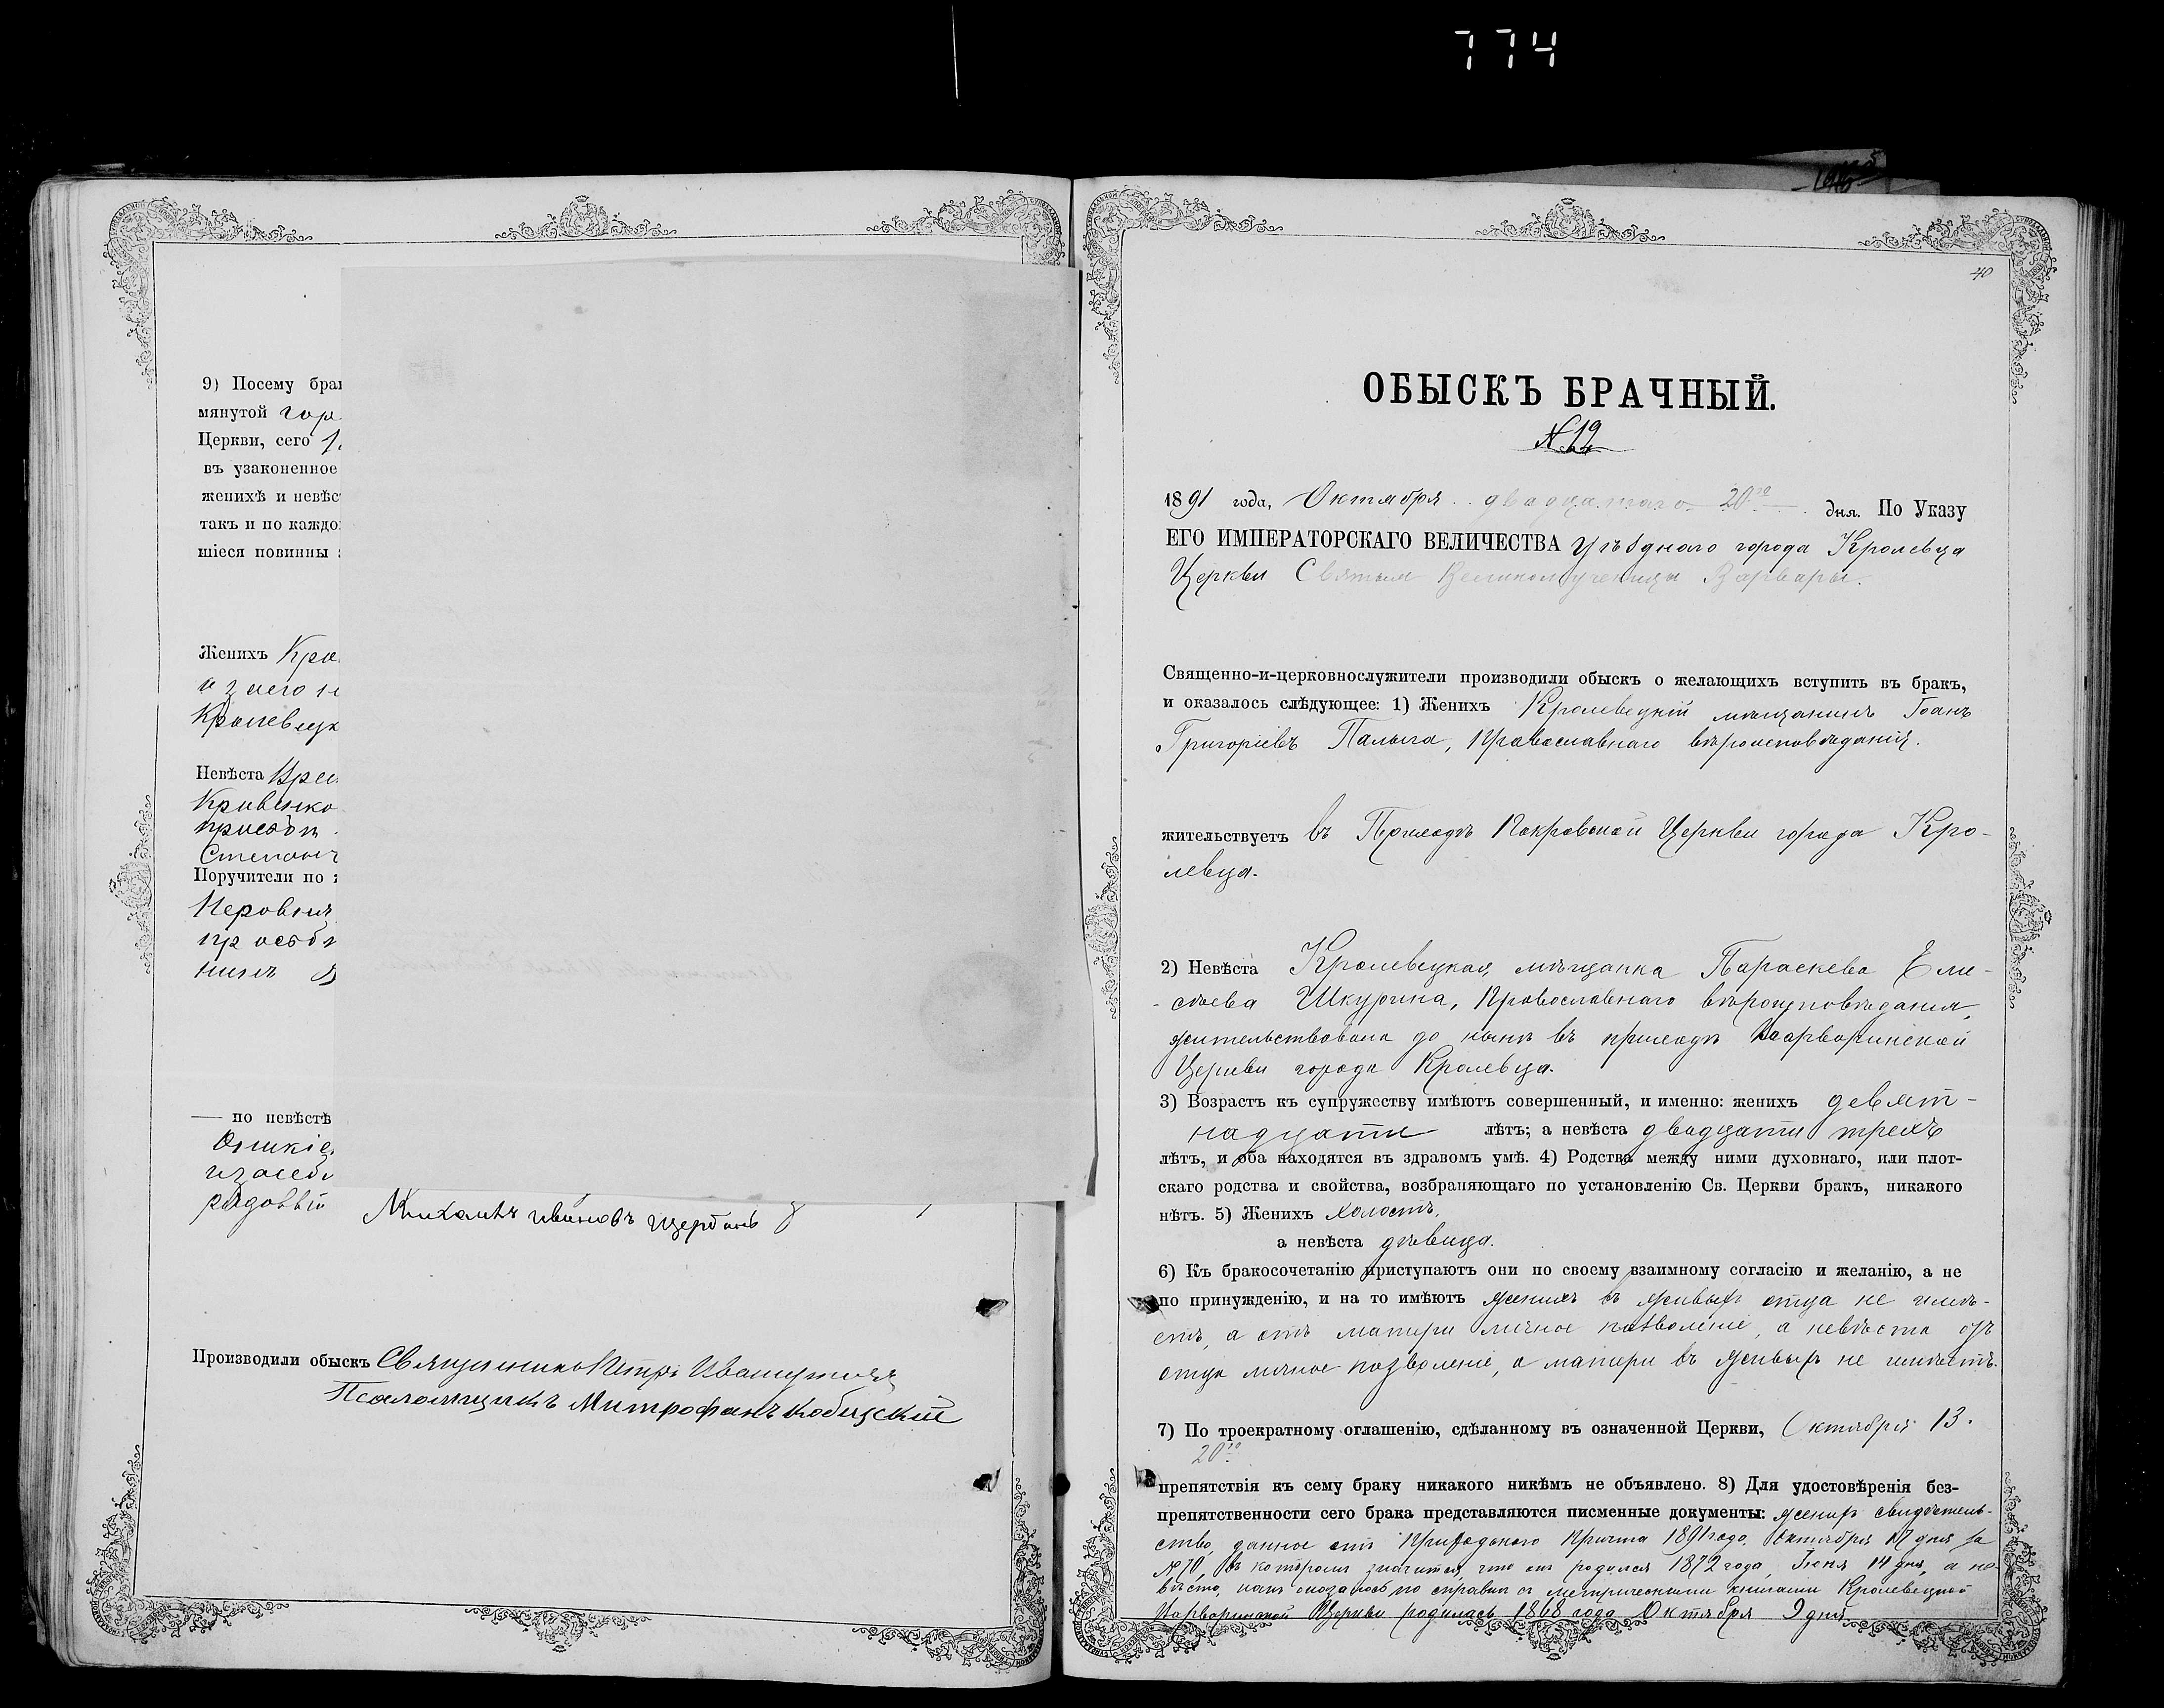 774
9) Посему бра
мянутой гор
Церкви, сего
въ узаконенное
женихѣ и невѣс
такъ и по каждо
шіеся повинны
Женихъ Кро
Кролевец
Невѣста
Кривенко
Степан
Поручители по
— по невѣстѣ
рядовый Михаилъ Ивановъ Щербакъ
Производили обыскъ Священникъ Петръ
Псаломщикъ Митрофанъ Кобицскій
40
ОБЫСКЪ БРАЧНЫЙ.
№ 12
1891 года, Октября двадцатаго 20го дня. По Указу
ЕГО ИМПЕРАТОРСКАГО ВЕЛИЧЕСТВА Уѣзднаго города Кролевца
Церкви Святыя Великомученицы Варвары.
Священно-и-церковнослужители производили обыскъ о желающихъ вступить въ бракъ,
и оказалось слѣдующее: 1) Женихъ Кролевецкій мѣщанинъ Іоанъ
Григоріевъ Палыга, Православнаго вѣроисповѣданія.
жительствуетъ въ Приходѣ Покровской Церкви города Кро-
левца.
2) Невѣста Кролевецкая мѣщанка Параскева Ели-
-сѣева Шкурина, Православнаго вѣроисповѣданія,
жительствовала до нынѣ въ приходѣ Варваринской
Церкви города Кролевца.
3) Возрастъ къ супружеству имѣютъ совершенный, и именно: женихъ девят-
надцати лѣтъ; а невѣста двадцати трехъ
лѣтъ, и оба находятся въ здравомъ умѣ. 4) Родства между ними духовнаго, или плот-
скаго родства и свойства, возбраняющаго по установленію Св. Церкви бракъ, никакого
нѣтъ. 5) Женихъ холостъ,
а невѣста дѣвица.
6) Къ бракосочетанію приступаютъ они по своему взаимному согласію и желанію, а не
по принужденію, и на то имѣютъ женихъ въ живыхъ отца не имѣ-
етъ, а отъ матери личное позволеніе, а невѣста отъ
отца личное позволеніе, а матери въ живыхъ не имѣетъ.
7) По троекратному оглашенію, сдѣланному въ означенной Церкви, Октября 13.
20го
препятствія къ сему браку никакого никѣмъ не объявлено. 8) Для удостовѣренія без-
препятственности сего брака представляются писменные документы: женихъ свидѣтель-
ство, данное отъ Приходскаго Причта 1891 года, Октября 17 дня за
№ 70, въ которомъ значится, что онъ родился 1872 года, Іюня 14 дня, а не-
вѣста, какъ оказалось по справкѣ съ метрическими книгами Кролевецкой
Варваринской Церкви родилась 1868 года Октября 9 дня.